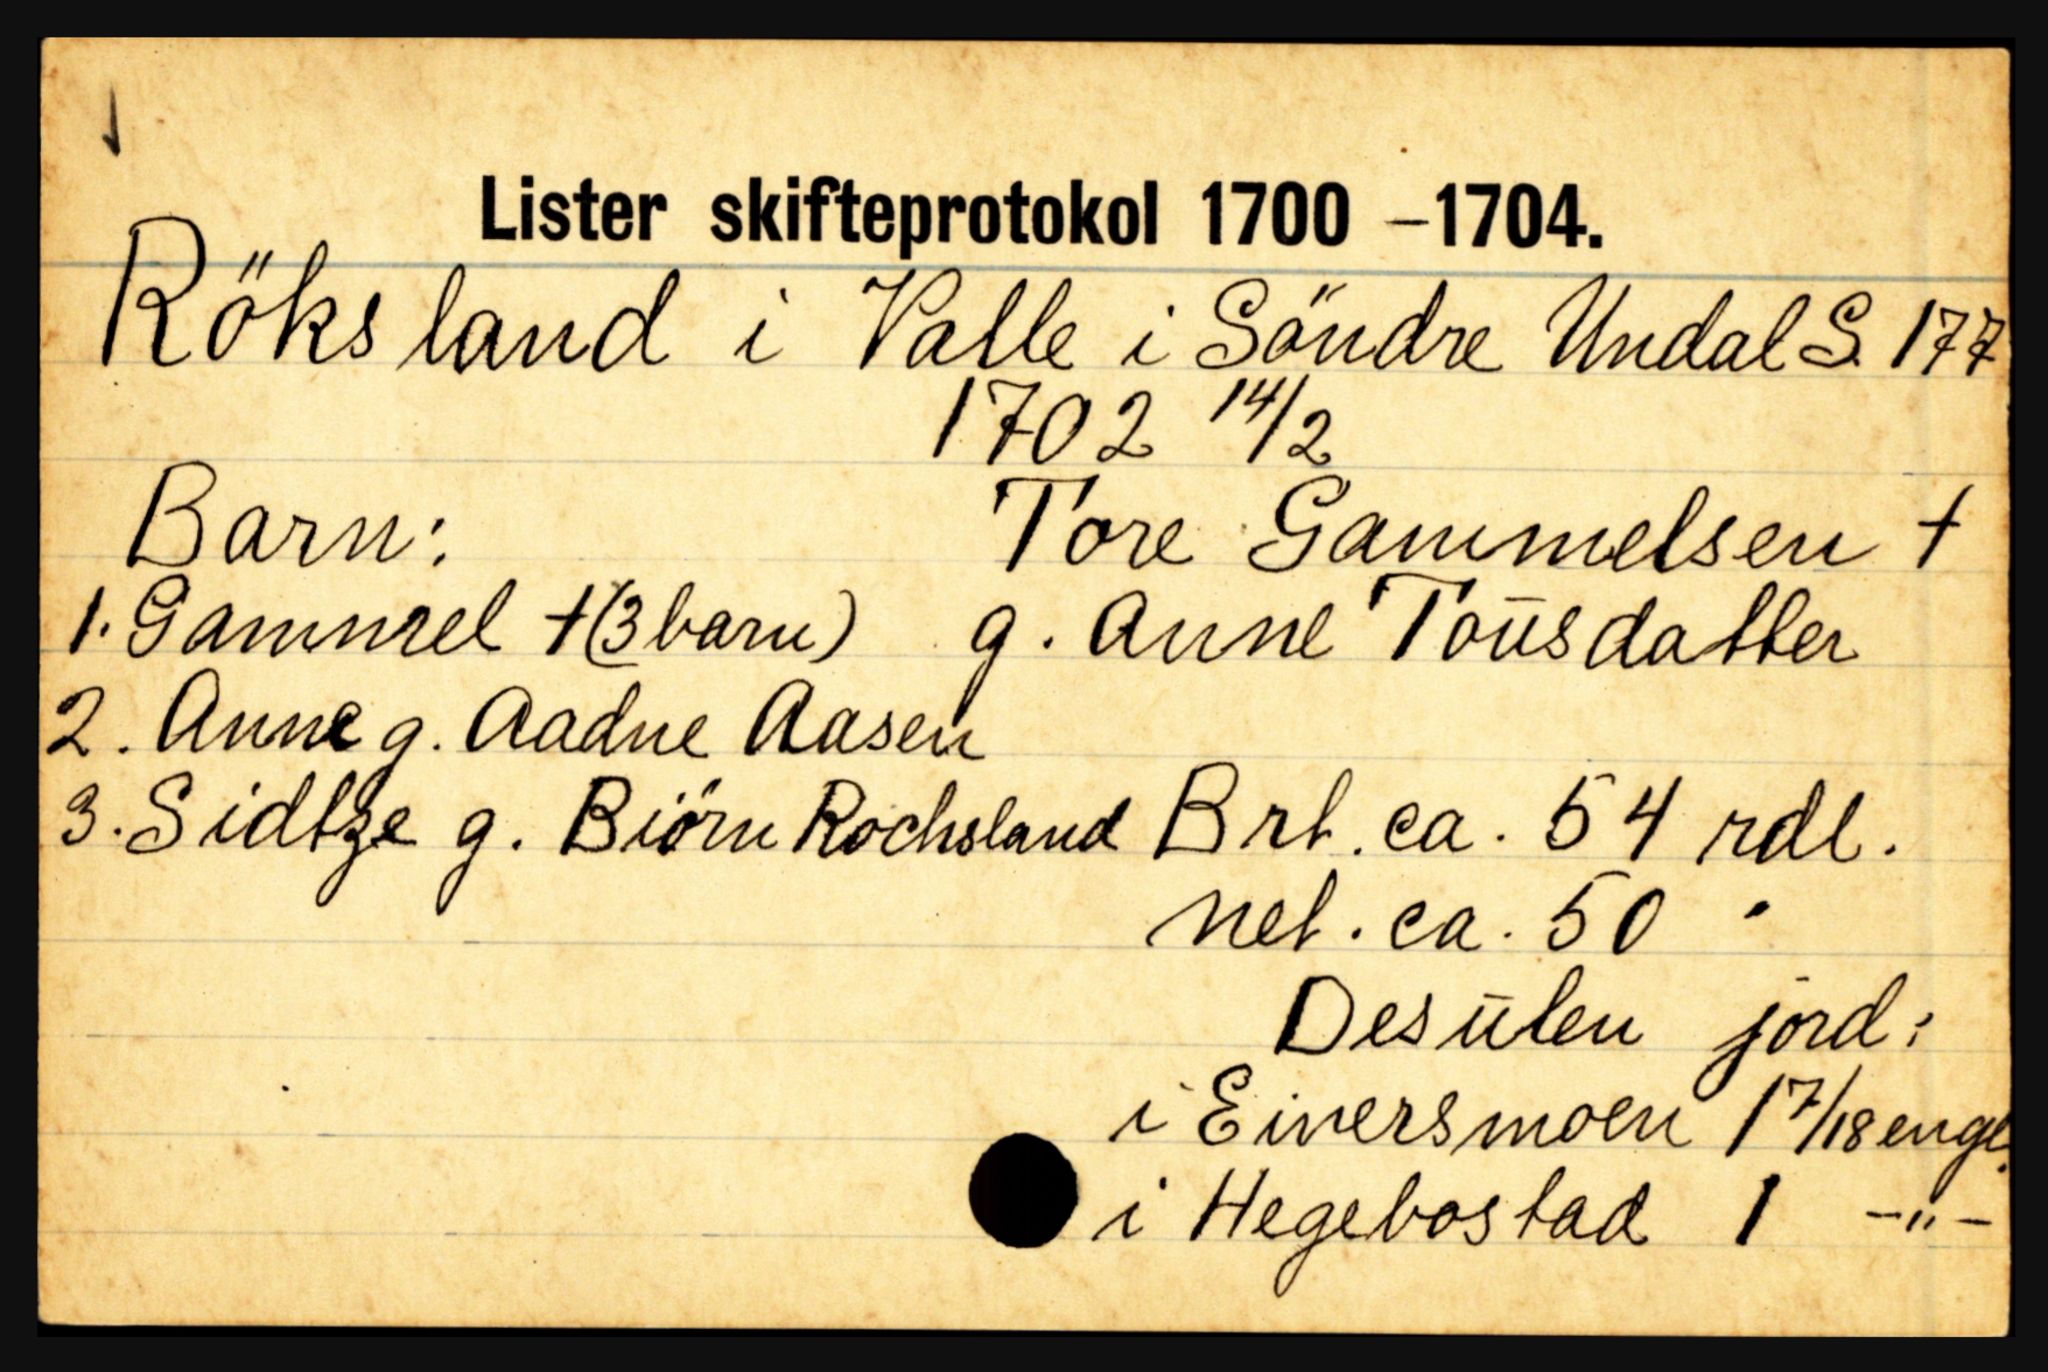 Lister skifteprotokol 1700 – 1704.
Röksland i Valle i Söndre Undal S. 177
1702 14/2
Barn: Tore Gammelsen †
1. Gammel † (3 barn) g. Anne Toūsdatter
2. Anne g. Aadne Aasen
3. Sidtze g. Biörn Rochsland Brt. ca. 54 rdl.
net. ca. 50 "
Desūten jord:
i Eiversmoen 1 7/18 engl.
i Hegebostad 1 -"-